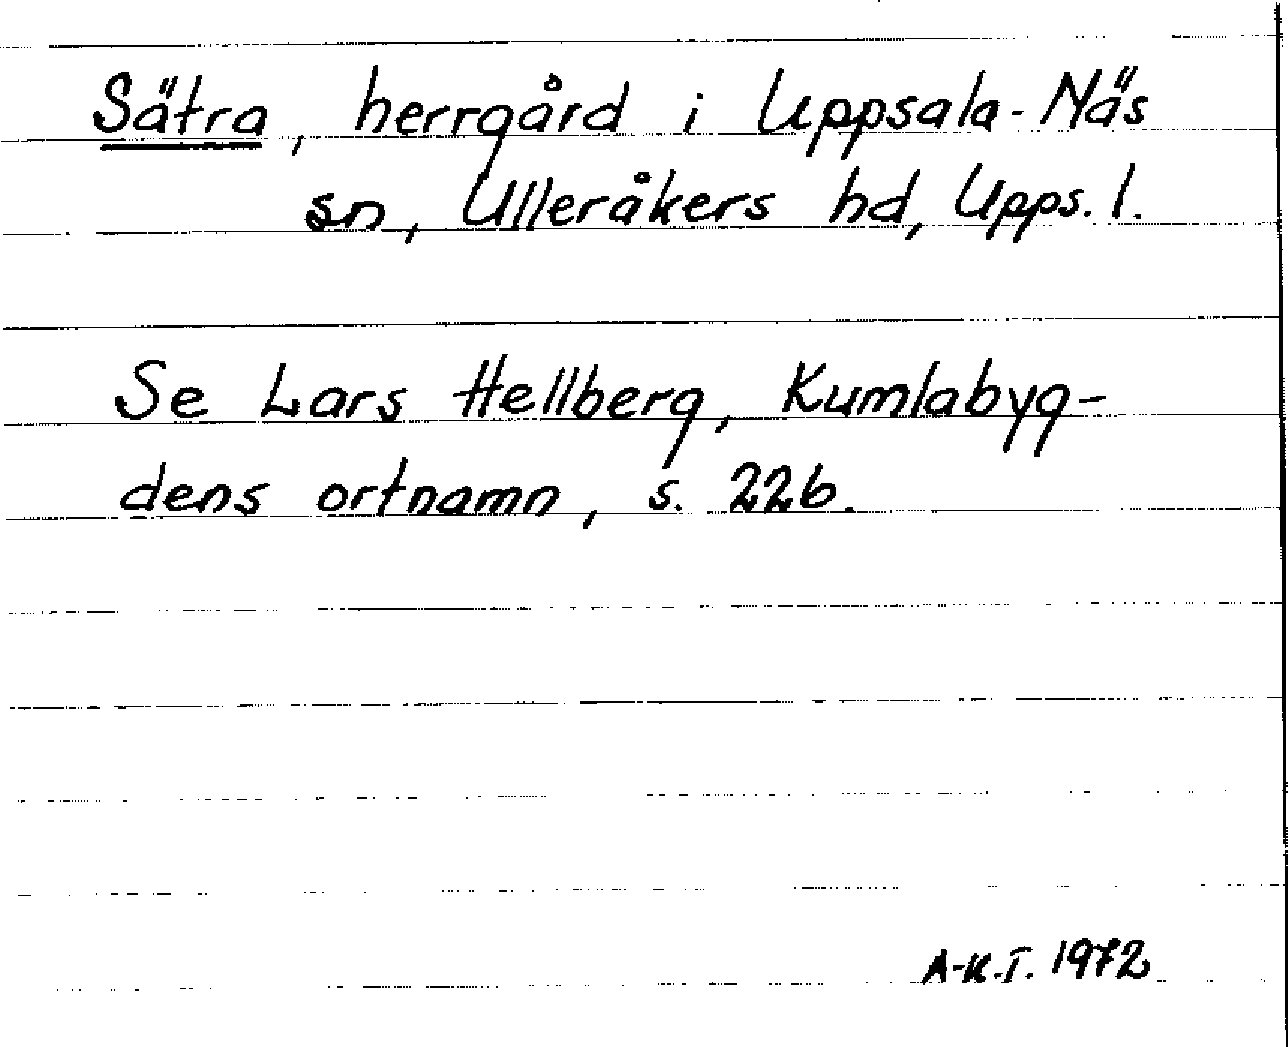 Sätra, herrgård i Uppsala-Näs
sn, Ulleråkers hd, Upps. l.
Se Lars Hellberg, Kumlabyg-
dens ortnamn, s. 226.
A-K.T. 1972